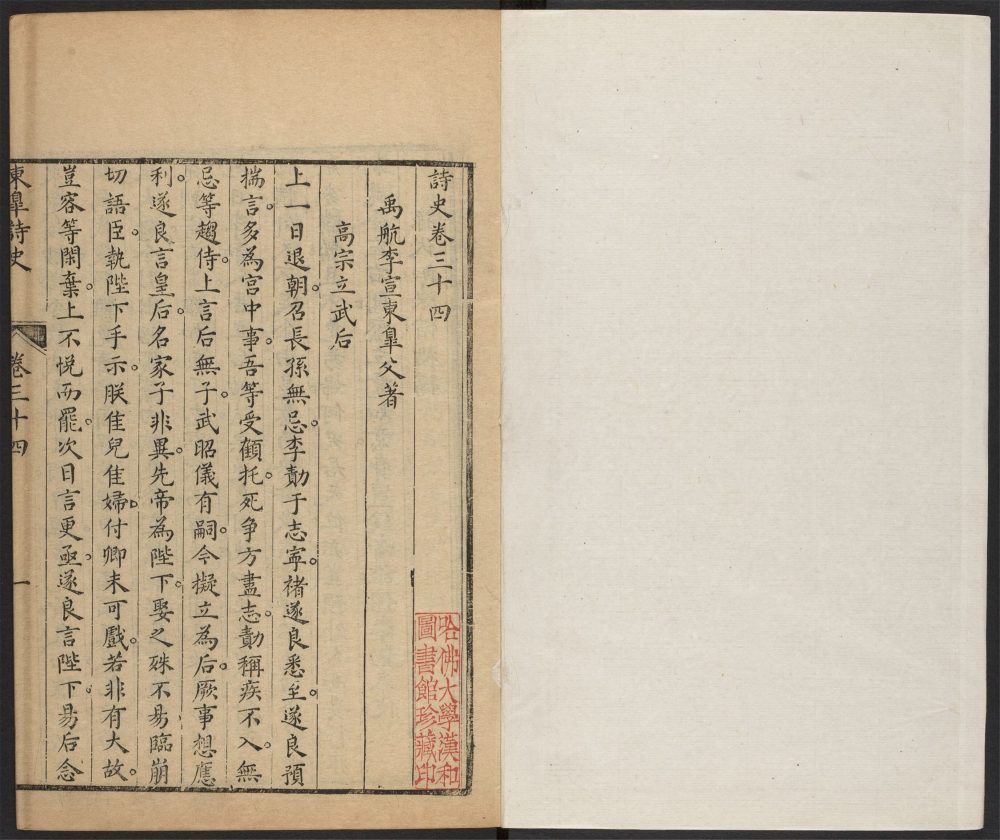 詩史卷三十四
禹航李宣東臯父著
高宗立武后
上一日退朝。召長孫無忌。李勣于志寧。褚遂良悉至。遂良預
揣言。多為宮中事。吾等受顧托。死争方盡志。勣稱疾不入。無
忌等趨侍。上言后無子。武昭儀有嗣。今擬立為后。厥事想應
利。遂良言皇后。名家子非異。先帝為陛下。娶之殊不易。臨崩
切語臣。執陛下手示。朕佳兒佳婦。付卿未可戲。若非有大故。
豈容等閑棄。上不悦而罷。次日言更亟。遂良言陛下。易后念
東臯詩史
卷三十四
一
哈佛大學漢和
圖書館珍藏印